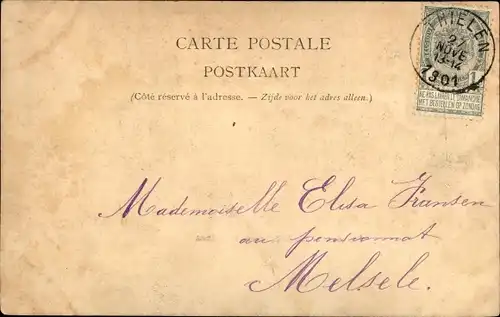 CARTE POSTALE
POSTKAART
(Côté réservé à l'adresse. — Zijde voor het adres alleen.)
THIELEN
NOVE
1901
1
NE PAS LIVRER LE DIMANCHE
NIET BESTELLEN OP ZONDAG
Mademoiselle Elisa Fransen
au pensionnat
Melsele.